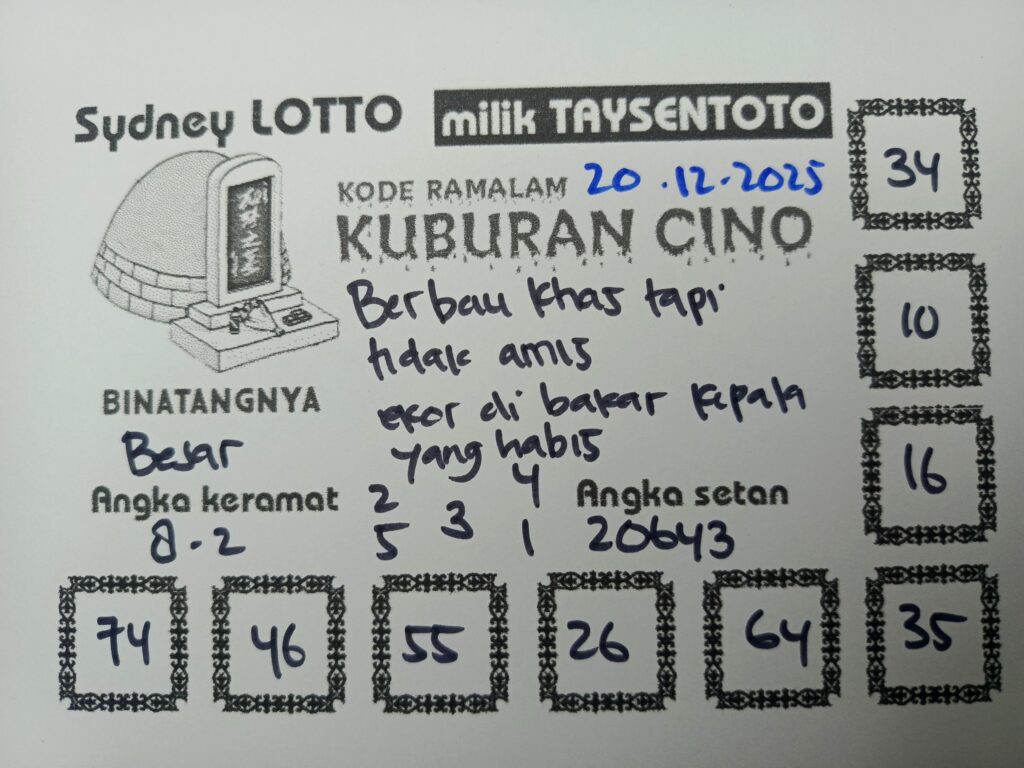 Sydney LOTTO
milik TAYSENTOTO
KODE RAMALAM 20.12.2025
KUBURAN CINO
Berbau khas tapi
tidak amis
ekor di bakar kepala
yang habis
BINATANGNYA
Besar
Angka keramat
8.2
2 4
3
5 1
Angka setan
20643
34
10
16
74 46 55 26 64 35